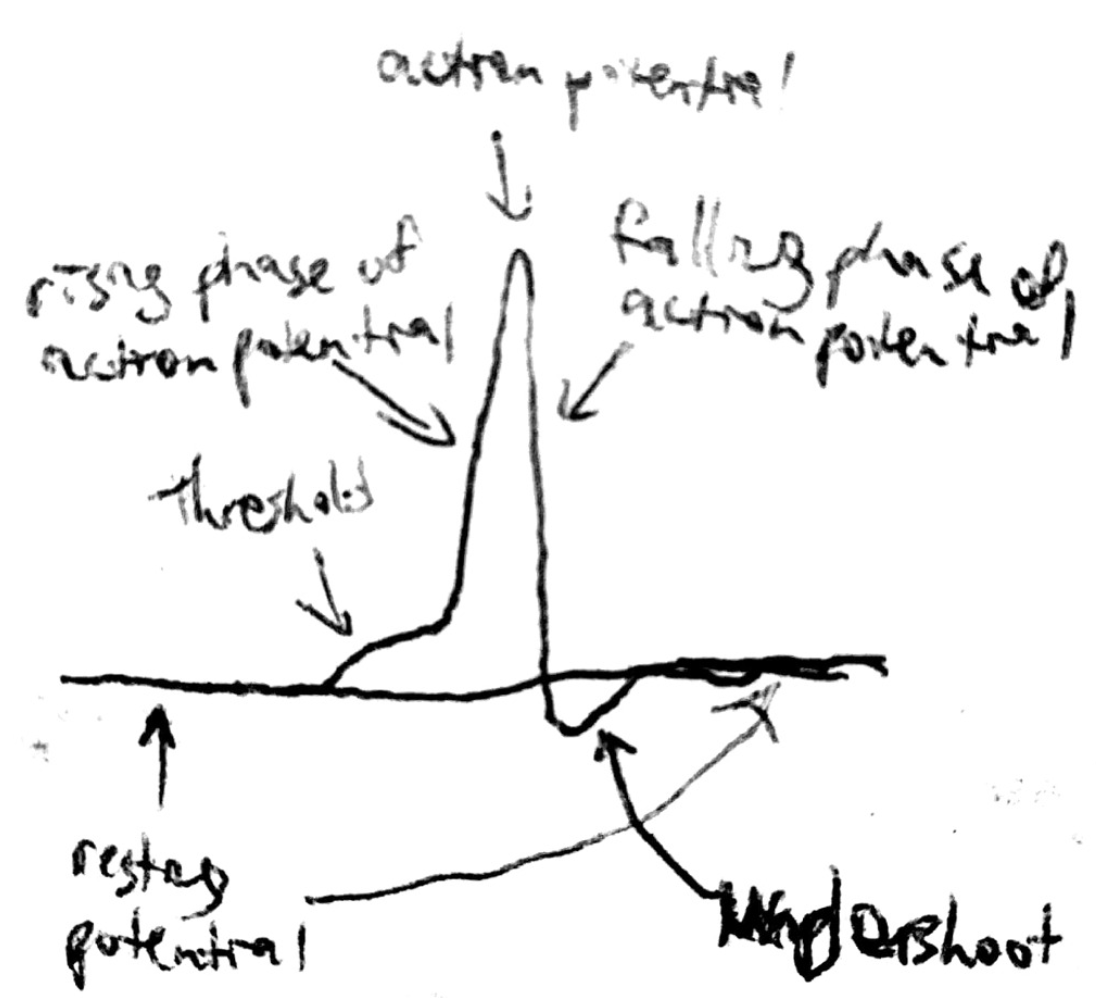 action potential
rising phase of
action potential
falling phase of
action potential
Threshold
resting
potential
undershoot